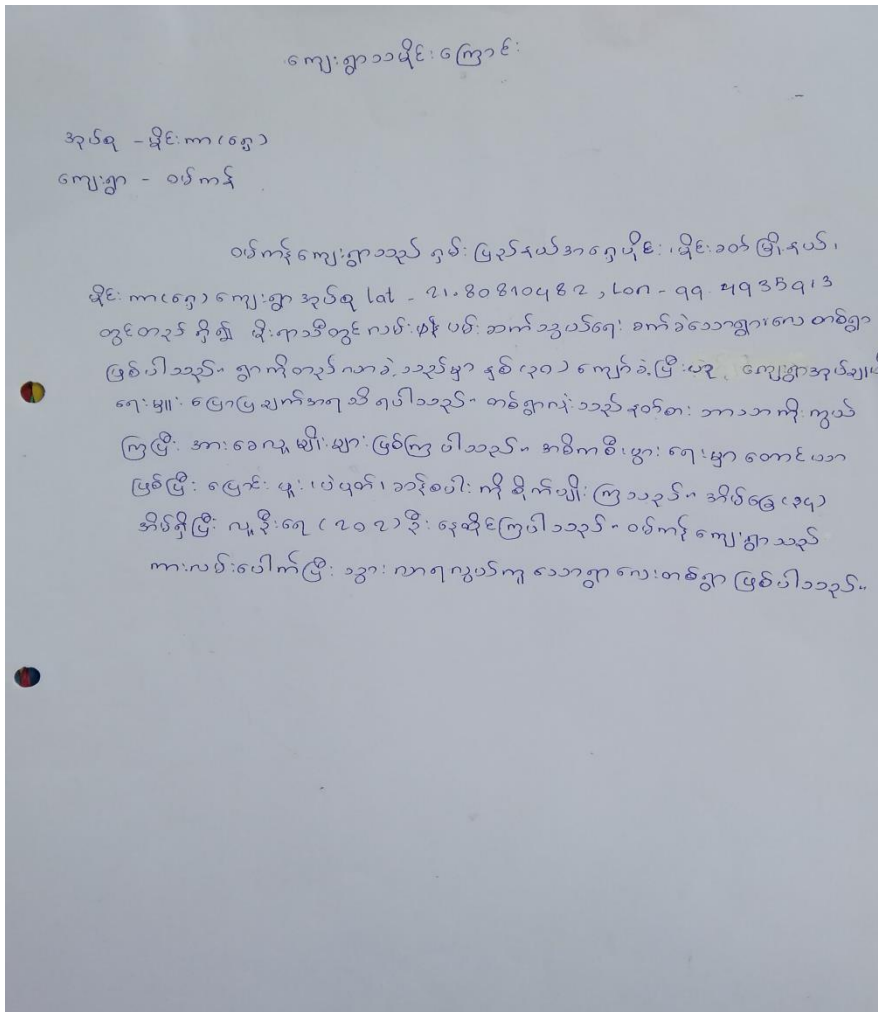 ကျေးရွာသမိုင်းကြောင်း
အုပ်စု - မိုင်းကာ(ရှေ့)
ကျေးရွာ - ဝမ်ကန်
ဝမ်ကန်ကျေးရွာသည် ရှမ်းပြည်နယ်အရှေ့ပိုင်း၊ မိုင်းခတ်မြို့နယ်၊
မိုင်းကာ(ရှေ့)ကျေးရွာအုပ်စု lat - 21.80810482, Lon - 99.4935913
တွင်တည်ရှိ၍ မိုးရာသီတွင်လမ်းပန်းဆက်သွယ်ရေး ခက်ခဲသောရွာလေးတစ်ရွာ
ဖြစ်ပါသည်။ ရွာကိုတည်လာခဲ့သည်မှာ နှစ်(၃၀)ကျော်ခဲ့ပြီးဟု ကျေးရွာအုပ်ချုပ်
ရေးမှူး ပြောပြချက်အရသိရပါသည်။ တစ်ရွာလုံးသည်နတ်စားဘာသာကိုးကွယ်
ကြပြီး အားခေလူမျိုးများဖြစ်ကြပါသည်။ အဓိကစီးပွားရေးမှာတောင်ယာ
ဖြစ်ပြီး ပြောင်းဖူး၊ပဲပုတ်၊ခါန်စပါးကိုစိုက်ပျိုးကြသည်။ အိမ်ခြေ(၃၄)
အိမ်ရှိပြီး လူဦးရေ(၁၀၁)ဦးနေထိုင်ကြပါသည်။ ဝမ်ကန်ကျေးရွာသည်
ကားလမ်းပေါက်ပြီး သွားလာရလွယ်ကူသောရွာလေးတစ်ရွာဖြစ်ပါသည်။